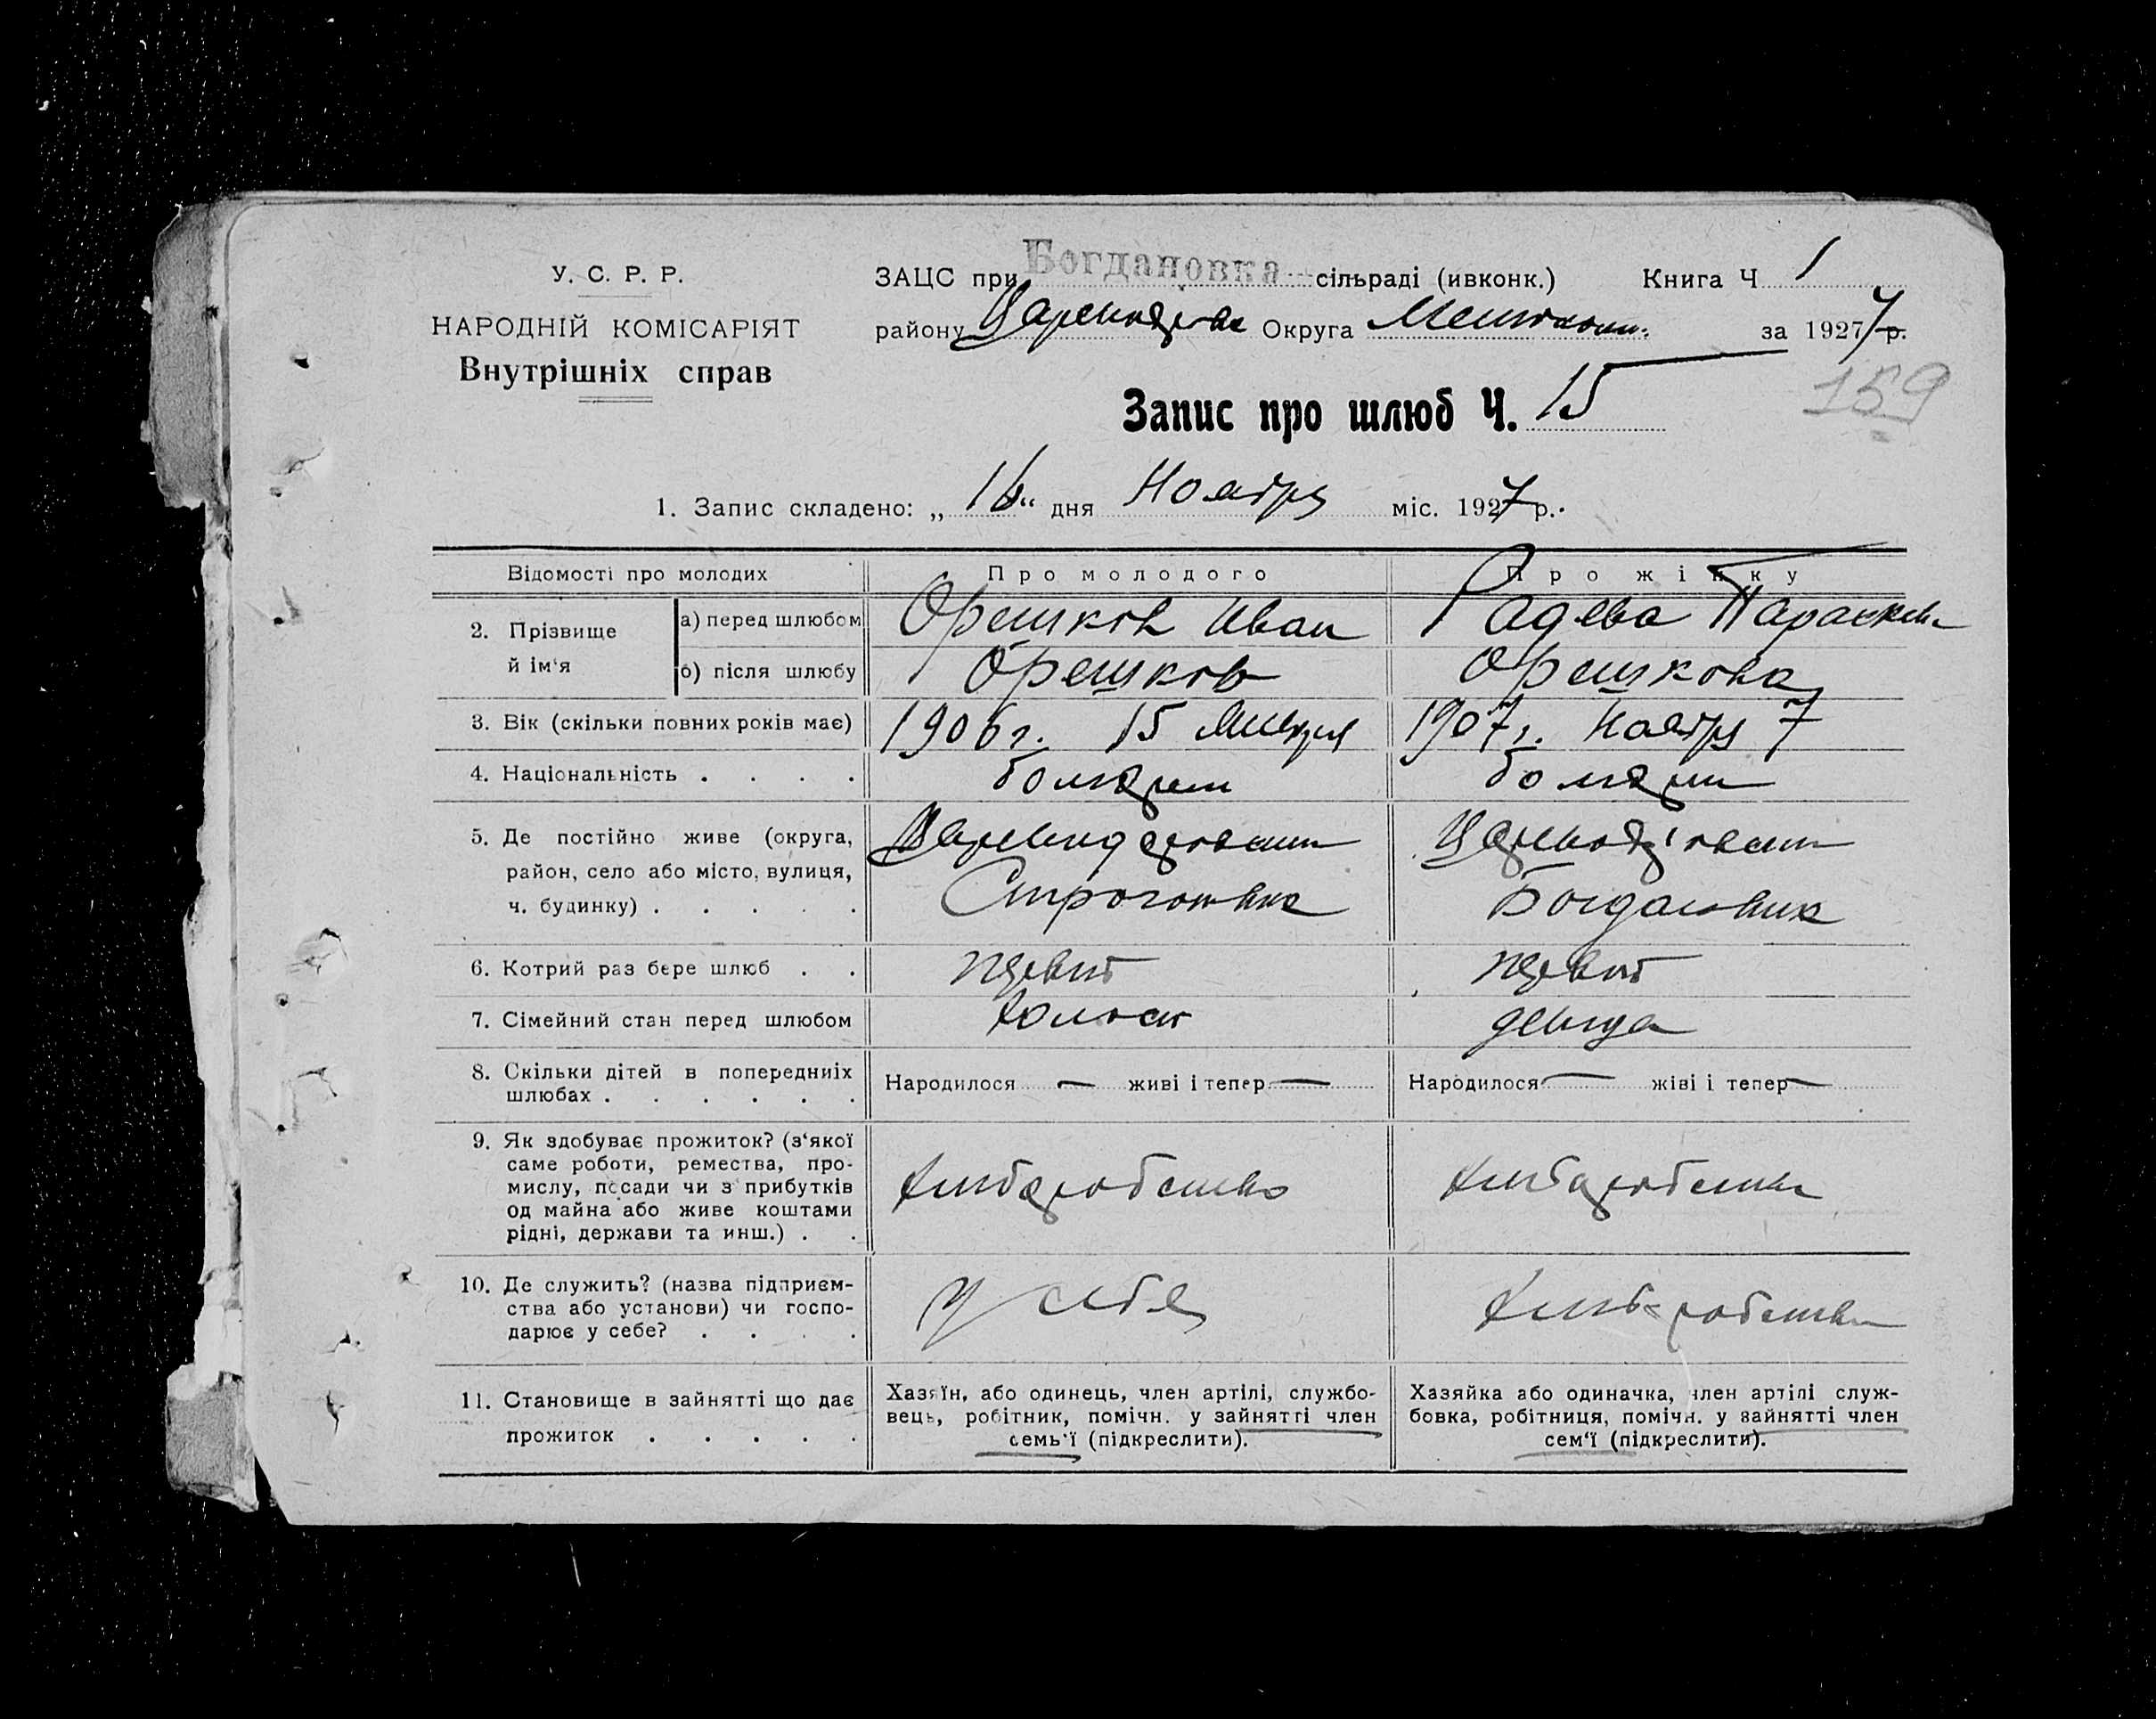 У. С. Р. Р.
НАРОДНІЙ КОМІСАРІЯТ
Внутрішніх справ
ЗАЦС при Богдановка сільраді (ивконк.) Книга Ч 1
району Округа за 1927 р.
Запис про шлюб Ч. 15
159
1. Запис складено: „16“ дня Ноября міс. 1927 р.
Відомості про молодих Про молодого Про жінку
2. Прізвище й ім‘я
а) перед шлюбом Орешков Иван Радева Параскева
б) після шлюбу Орешков Орешкова
3. Вік (скільки повних років має) 1906 г. 15 1907 г. Ноября 7
4. Національність . . . . болгарин
5. Де постійно живе (округа,
район, село або місто, вулиця,
ч. будинку) . . . . . Строгоновка Богдановка
6. Котрий раз бере шлюб . . первый первый
7. Сімейний стан перед шлюбом холост девица
8. Скільки дітей в попередниіх
шлюбах . . . . . . Народилося — живі і тепер — Народилося — жіві і тепер —
9. Як здобуває прожиток? (з‘якої
саме роботи, ремества, про-
мислу, посади чи з прибутків
од майна або живе коштами
рідні, держави та инш.) . . хлебаробство хлебаробство
10. Де служить? (назва підприєм-
ства або установи) чи госпо-
дарює у себе? . . . . у себя хлебаробство
11. Становище в зайнятті що дає
прожиток . . . . .
Хазяїн, або одинець, член артілі, службо-
вець, робітник, помічн. у зайнятті член
семь‘ї (підкреслити).
Хазяйка або одиначка, член артілі служ-
бовка, робітниця, помічн. у зайнятті член
сем‘ї (підкреслити).